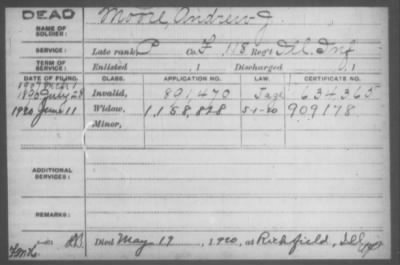 DEAD
NAME OF SOLDIER: Moore, Andrew J.
SERVICE: Late rank, P Co. F, 118 Reg't Ill. Inf
TERM OF SERVICE: Enlisted , 1 Discharged , 1
DATE OF FILING. CLASS. APPLICATION NO. LAW. CERTIFICATE NO.
1907
1890 July 28 Invalid, 801,470 634365
1920 June 11 Widow, 1,158,828 5-1-20 909178
Minor,
ADDITIONAL SERVICES:
REMARKS:
Died May 19, 1920, at Richfield, Ill